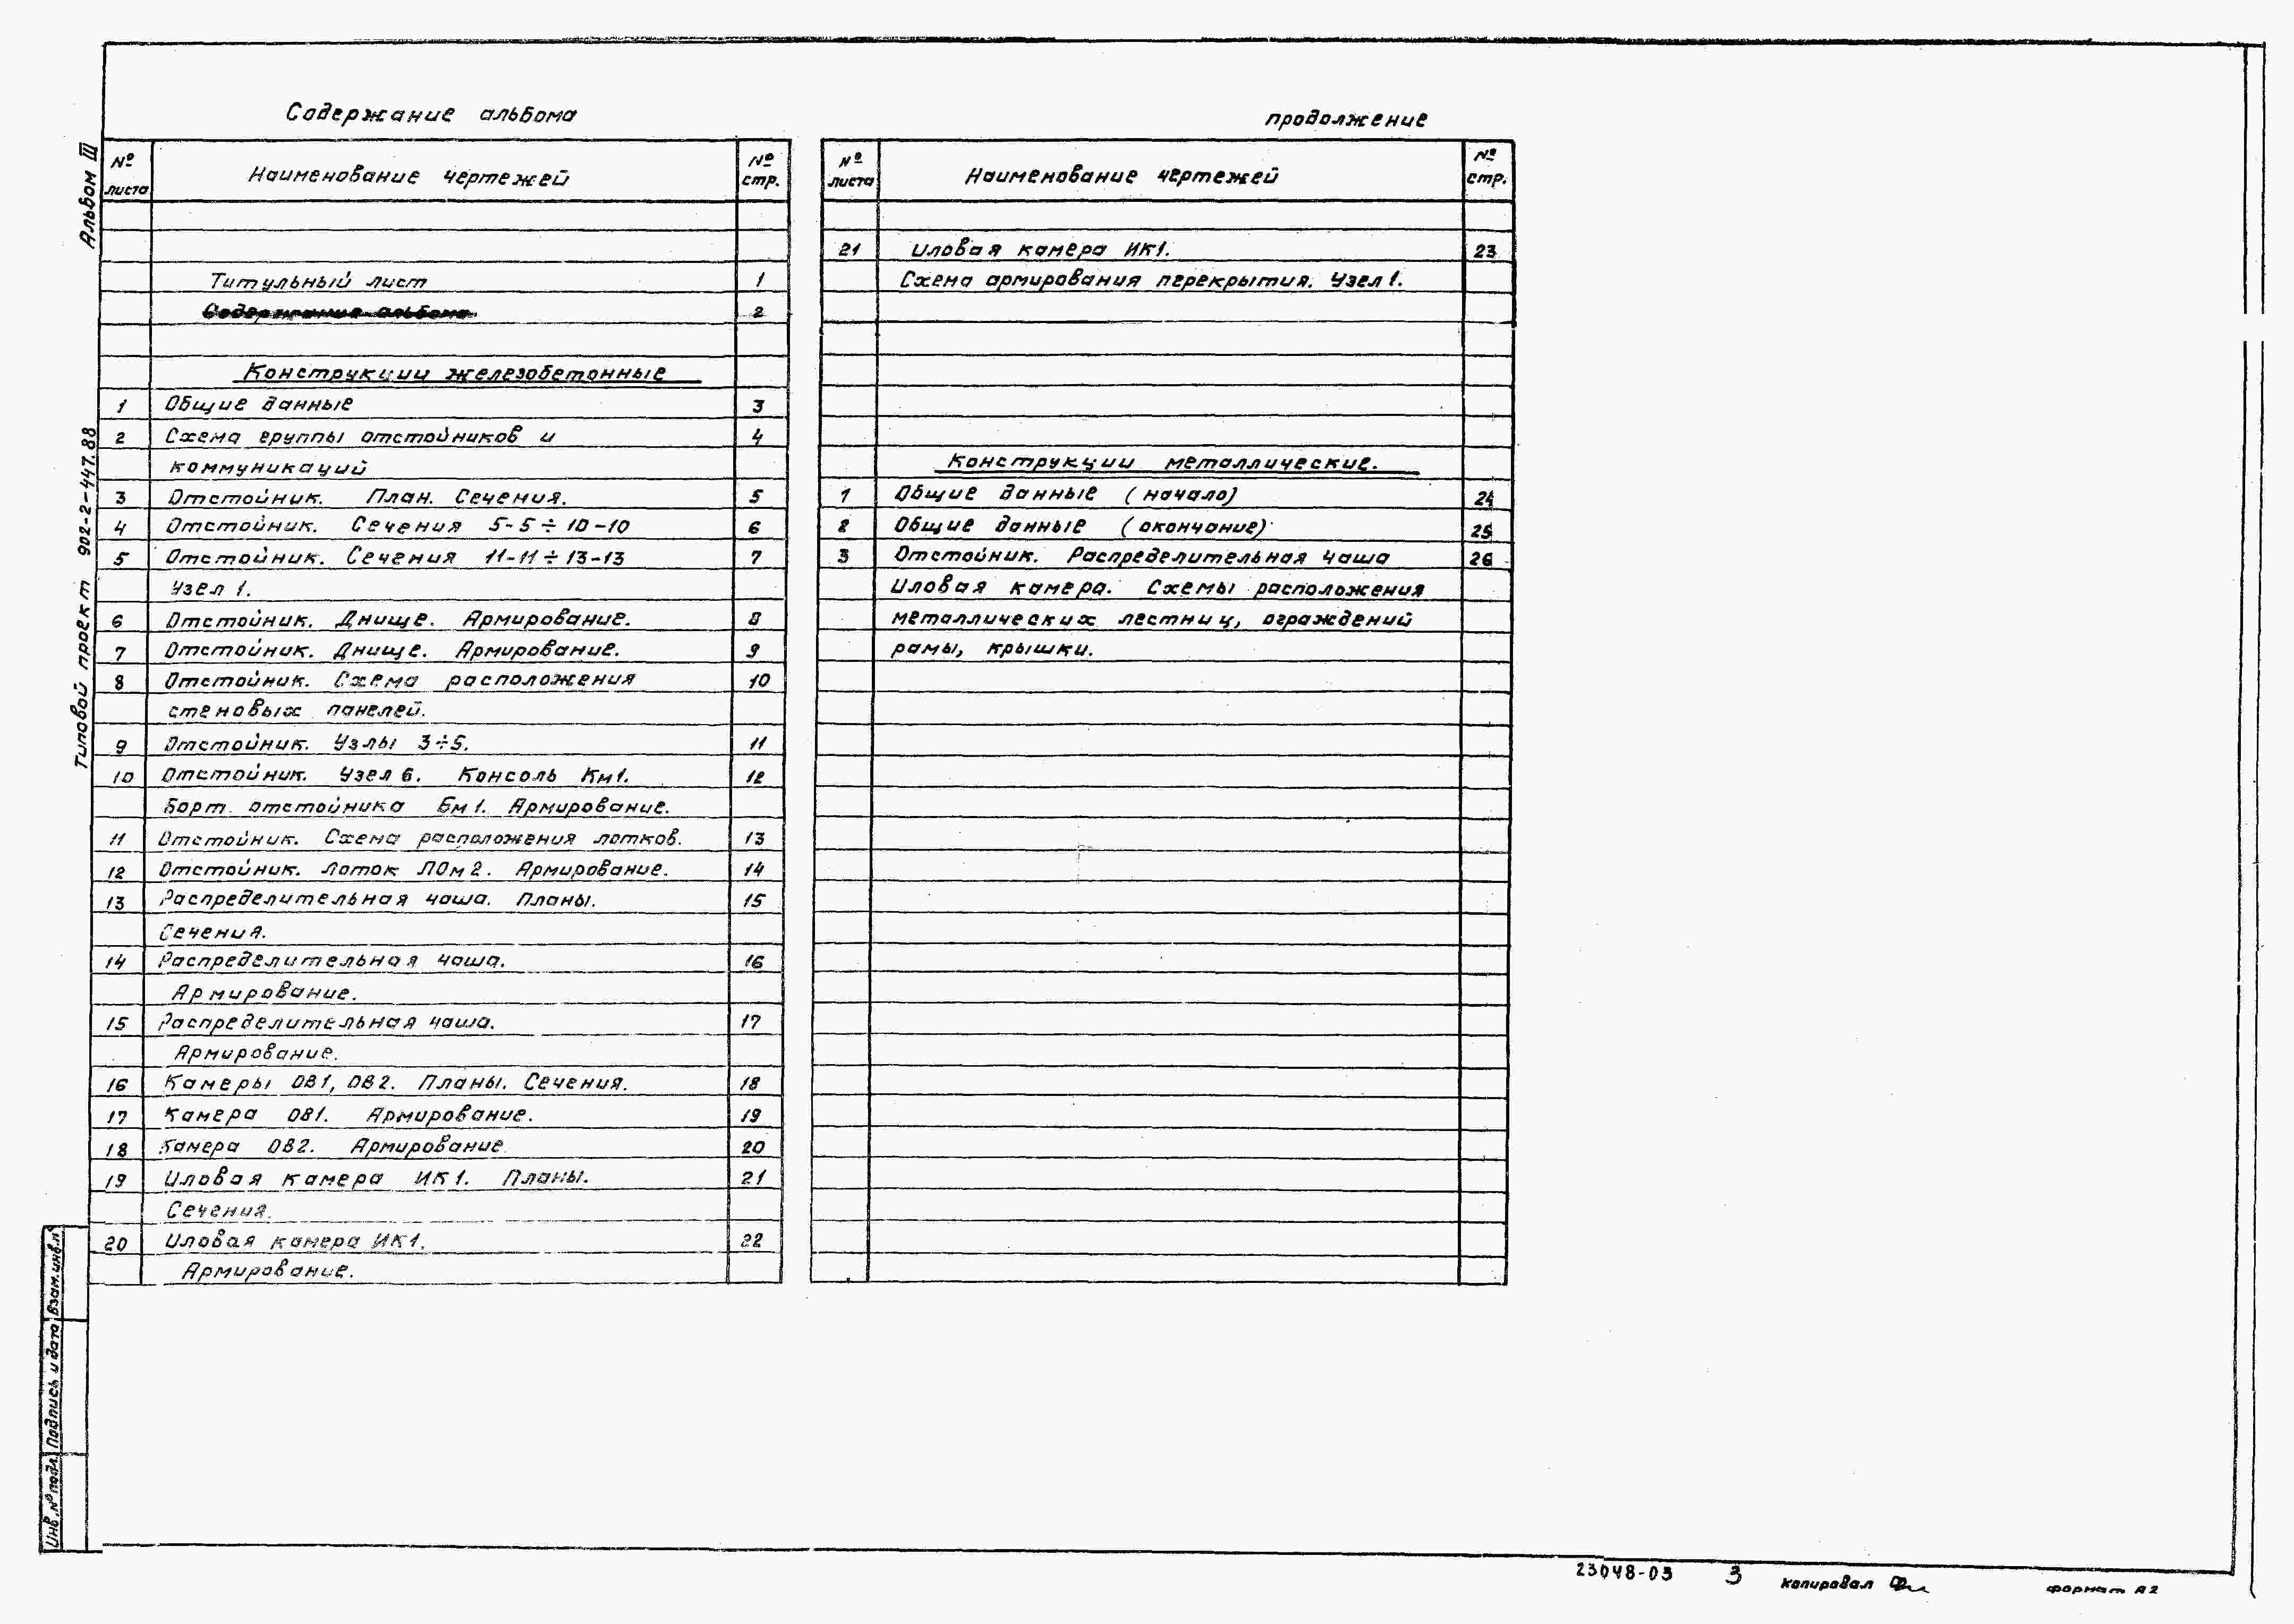 Содержание альбома
№ листа Наименование чертежей № стр.
Титульный лист 1
Содержание альбома 2
Конструкции железобетонные
1 Общие данные 3
2 Схема группы отстойников и 4
коммуникаций
3 Отстойник. План. Сечения. 5
4 Отстойник. Сечения 5-5÷10-10 6
5 Отстойник. Сечения 11-11÷13-13 7
Узел 1.
6 Отстойник. Днище. Армирование. 8
7 Отстойник. Днище. Армирование. 9
8 Отстойник. Схема расположения 10
стеновых панелей.
9 Отстойник. Узлы 3÷5. 11
10 Отстойник. Узел 6. Консоль Км1. 12
Борт отстойника Бм1. Армирование.
11 Отстойник. Схема расположения лотков. 13
12 Отстойник. Лоток ЛОм2. Армирование. 14
13 Распределительная чаша. Планы. 15
Сечения.
14 Распределительная чаша. 16
Армирование.
15 Распределительная чаша. 17
Армирование.
16 Камеры ОВ1, ОВ2. Планы. Сечения. 18
17 Камера ОВ1. Армирование. 19
18 Камера ОВ2. Армирование 20
19 Иловая камера ИК1. Планы. 21
Сечения.
20 Иловая камера ИК1. 22
Армирование.
продолжение
№ листа Наименование чертежей № стр.
21 Иловая камера ИК1. 23
Схема армирования перекрытия. Узел 1.
Конструкции металлические.
1 Общие данные (начало) 24
2 Общие данные (окончание) 25
3 Отстойник. Распределительная чаша 26
Иловая камера. Схемы расположения
металлических лестниц, ограждений
рамы, крышки.
Альбом III
Типовой проект 902-2-447.88
Взам. инв. №
Подпись и дата
Инв. № подл.
23048-03 3 Копировал формат А2